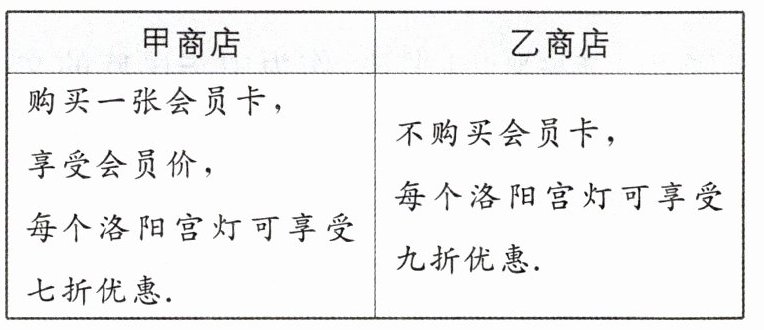 甲商店
乙商店
购买一张会员卡，
享受会员价，
每个洛阳宫灯可享受
七折优惠.
不购买会员卡，
每个洛阳宫灯可享受
九折优惠.